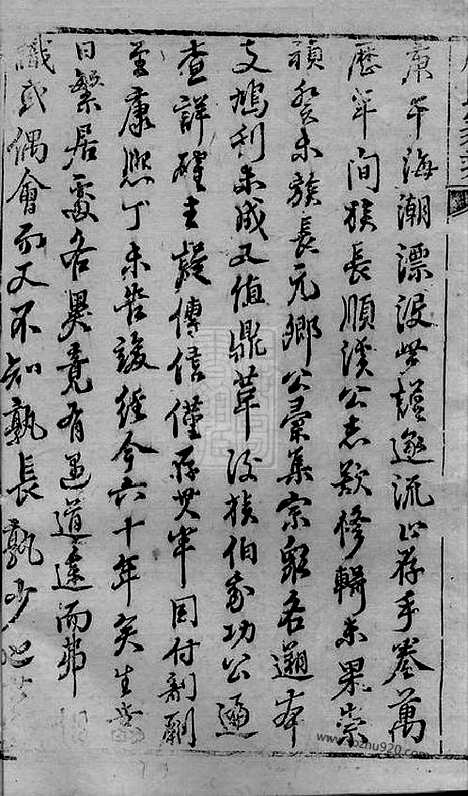 庚午海潮漂沒無蹤逐流止存手卷萬
曆年間族長順溪公志欲修輯未果崇
禎癸未族長元卿公彙集宗親各遡本
支鳩利未成又值鼎革後族伯我功公遍
查詳確主疑傳信僅存世牢因付剞劂
至康熙丁未告竣經今六十年矣生齒
日繁居處各異竟有遇道途而弗
識或偶會而又不知孰長孰少也
zhu920.com